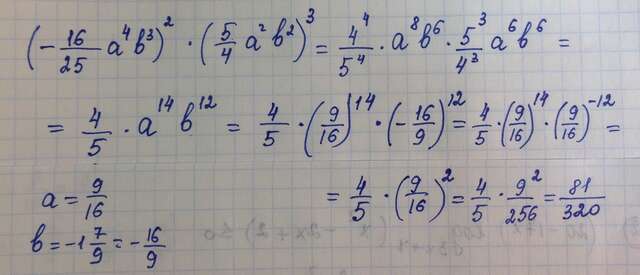 (-16/25 a⁴b³)² · (5/4 a²b²)³ = 4⁴/5⁴ · a⁸b⁶ · 5³/4³ a⁶b⁶ =
= 4/5 · a¹⁴ b¹² = 4/5 · (9/16)¹⁴ · (-16/9)¹² = 4/5 · (9/16)¹⁴ · (9/16)⁻¹² =
a = 9/16
= 4/5 · (9/16)² = 4/5 · 9²/256 = 81/320
b = -1 7/9 = -16/9